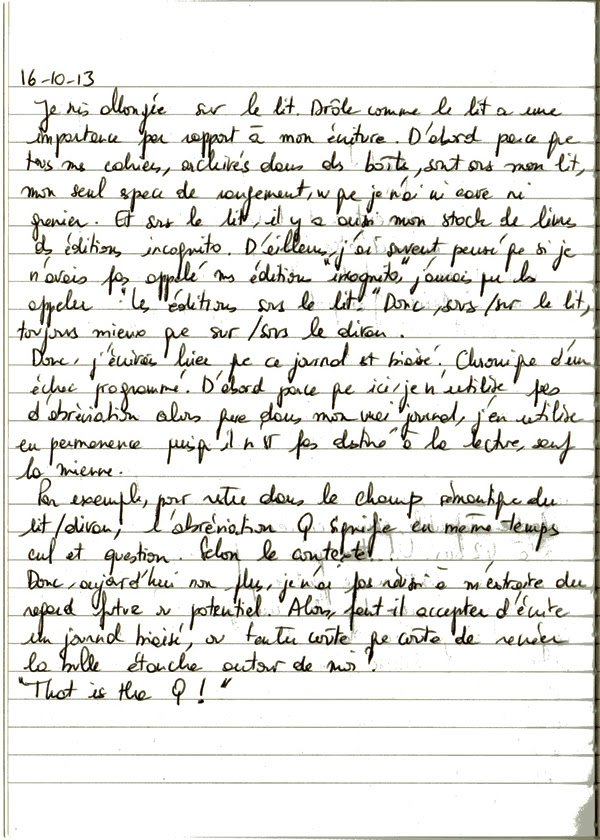 16-10-13
Je suis allongée sur le lit. Drôle comme le lit a une
importance par rapport à mon écriture. D'abord parce que
tous mes cahiers, archivés dans des boîte, sont sous mon lit,
mon seul espace de rangement, vu que je n'ai ni cave ni
grenier. Et sous le lit, il y a aussi mon stock de livres
des éditions incognito. D'ailleurs, j'ai souvent pensé que si je
n'avais pas appelé mes éditions "incognito", j'aurais pu les
appeler "Les éditions sous le lit." Donc, sous/sur le lit,
toujours mieux que sur/sous le divan.
Donc, j'écrivais hier que ce journal est biaisé. Chronique d'un
échec programmé. D'abord parce que ici, je n'utilise pas
d'abréviation alors que dans mon vrai journal, j'en utilise
en permanence puisqu'il n' pas destiné à la lecture, sauf
la mienne.
Par exemple, pour rester dans le champ sémantique du
lit/divan, l'abréviation Q signifie en même temps
cul et question. Selon le contexte!..
Donc, aujourd'hui non plus, je n'ai pas réussi à m'extraire du
regard futur ou potentiel. Alors, faut-il accepter d'écrire
un journal biaisé, ou tenter coûte que coûte de recréer
la bulle étanche autour de moi?
"That is the Q!"